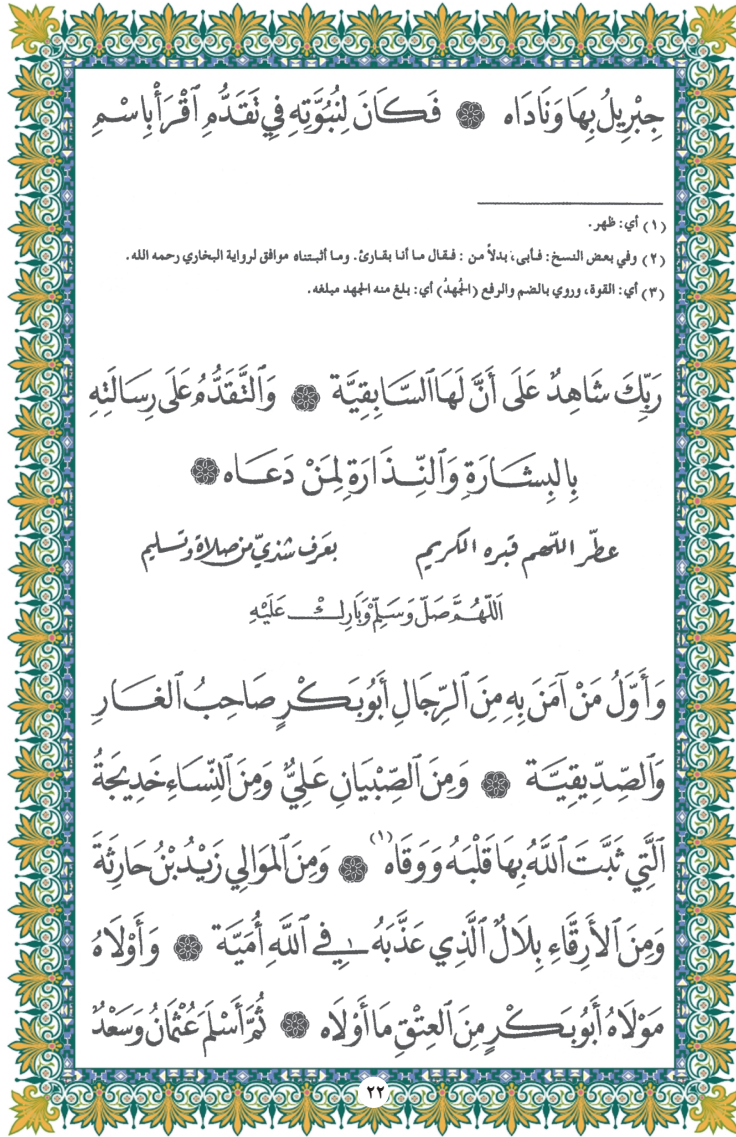 جِبْرِيلُ بِهَا وَنَادَاه ۞ فَكَانَ لِنُبُوَّتِهِ فِي تَقَدُّمِ ٱقْرَأْ بِاسْمِ
(١) أي: ظهر.
(٢) وفي بعض النسخ: فأبى، بدلاً من: فقال ما أنا بقارئ. وما أثبتناه موافق لرواية البخاري رحمه الله.
(٣) أي: القوة، وروي بالضم والرفع (الجُهدُ) أي: بلغ منه الجهد مبلغه.
رَبِّكَ شَاهِدٌ عَلَى أَنَّ لَهَا ٱلسَّابِقِيَّة ۞ وَٱلتَّقَدُّمُ عَلَى رِسَالَتِهِ
بِالبِشَارَةِ وَٱلنِّذَارَةِ لِمَنْ دَعَاه ۞
عطّر اللّهم قبره الكريم بعَرف شذيّ من صلاة وتسليم
اَللّٰهُمَّ صَلِّ وَسَلِّمْ وَبَارِكْ عَلَيْهِ
وَأَوَّلُ مَنْ آمَنَ بِهِ مِنَ ٱلرِّجَالِ أَبُو بَكْرٍ صَاحِبُ ٱلغَارِ
وَٱلصِّدِّيقِيَّة ۞ وَمِنَ ٱلصِّبْيَانِ عَلِيٌّ وَمِنَ ٱلنِّسَاءِ خَدِيجَةُ
ٱلَّتِي ثَبَّتَ ٱللَّهُ بِهَا قَلْبَهُ وَوَقَاه (١) ۞ وَمِنَ ٱلمَوَالِي زَيْدُ بْنُ حَارِثَةَ
وَمِنَ ٱلأَرِقَّاءِ بِلَالٌ ٱلَّذِي عَذَّبَهُ فِي ٱللَّهِ أُمَيَّة ۞ وَأَوْلَاهُ
مَوْلَاهُ أَبُو بَكْرٍ مِنَ ٱلعِتْقِ مَا أَوْلَاه ۞ ثُمَّ أَسْلَمَ عُثْمَانُ وَسَعْدٌ
٢٢